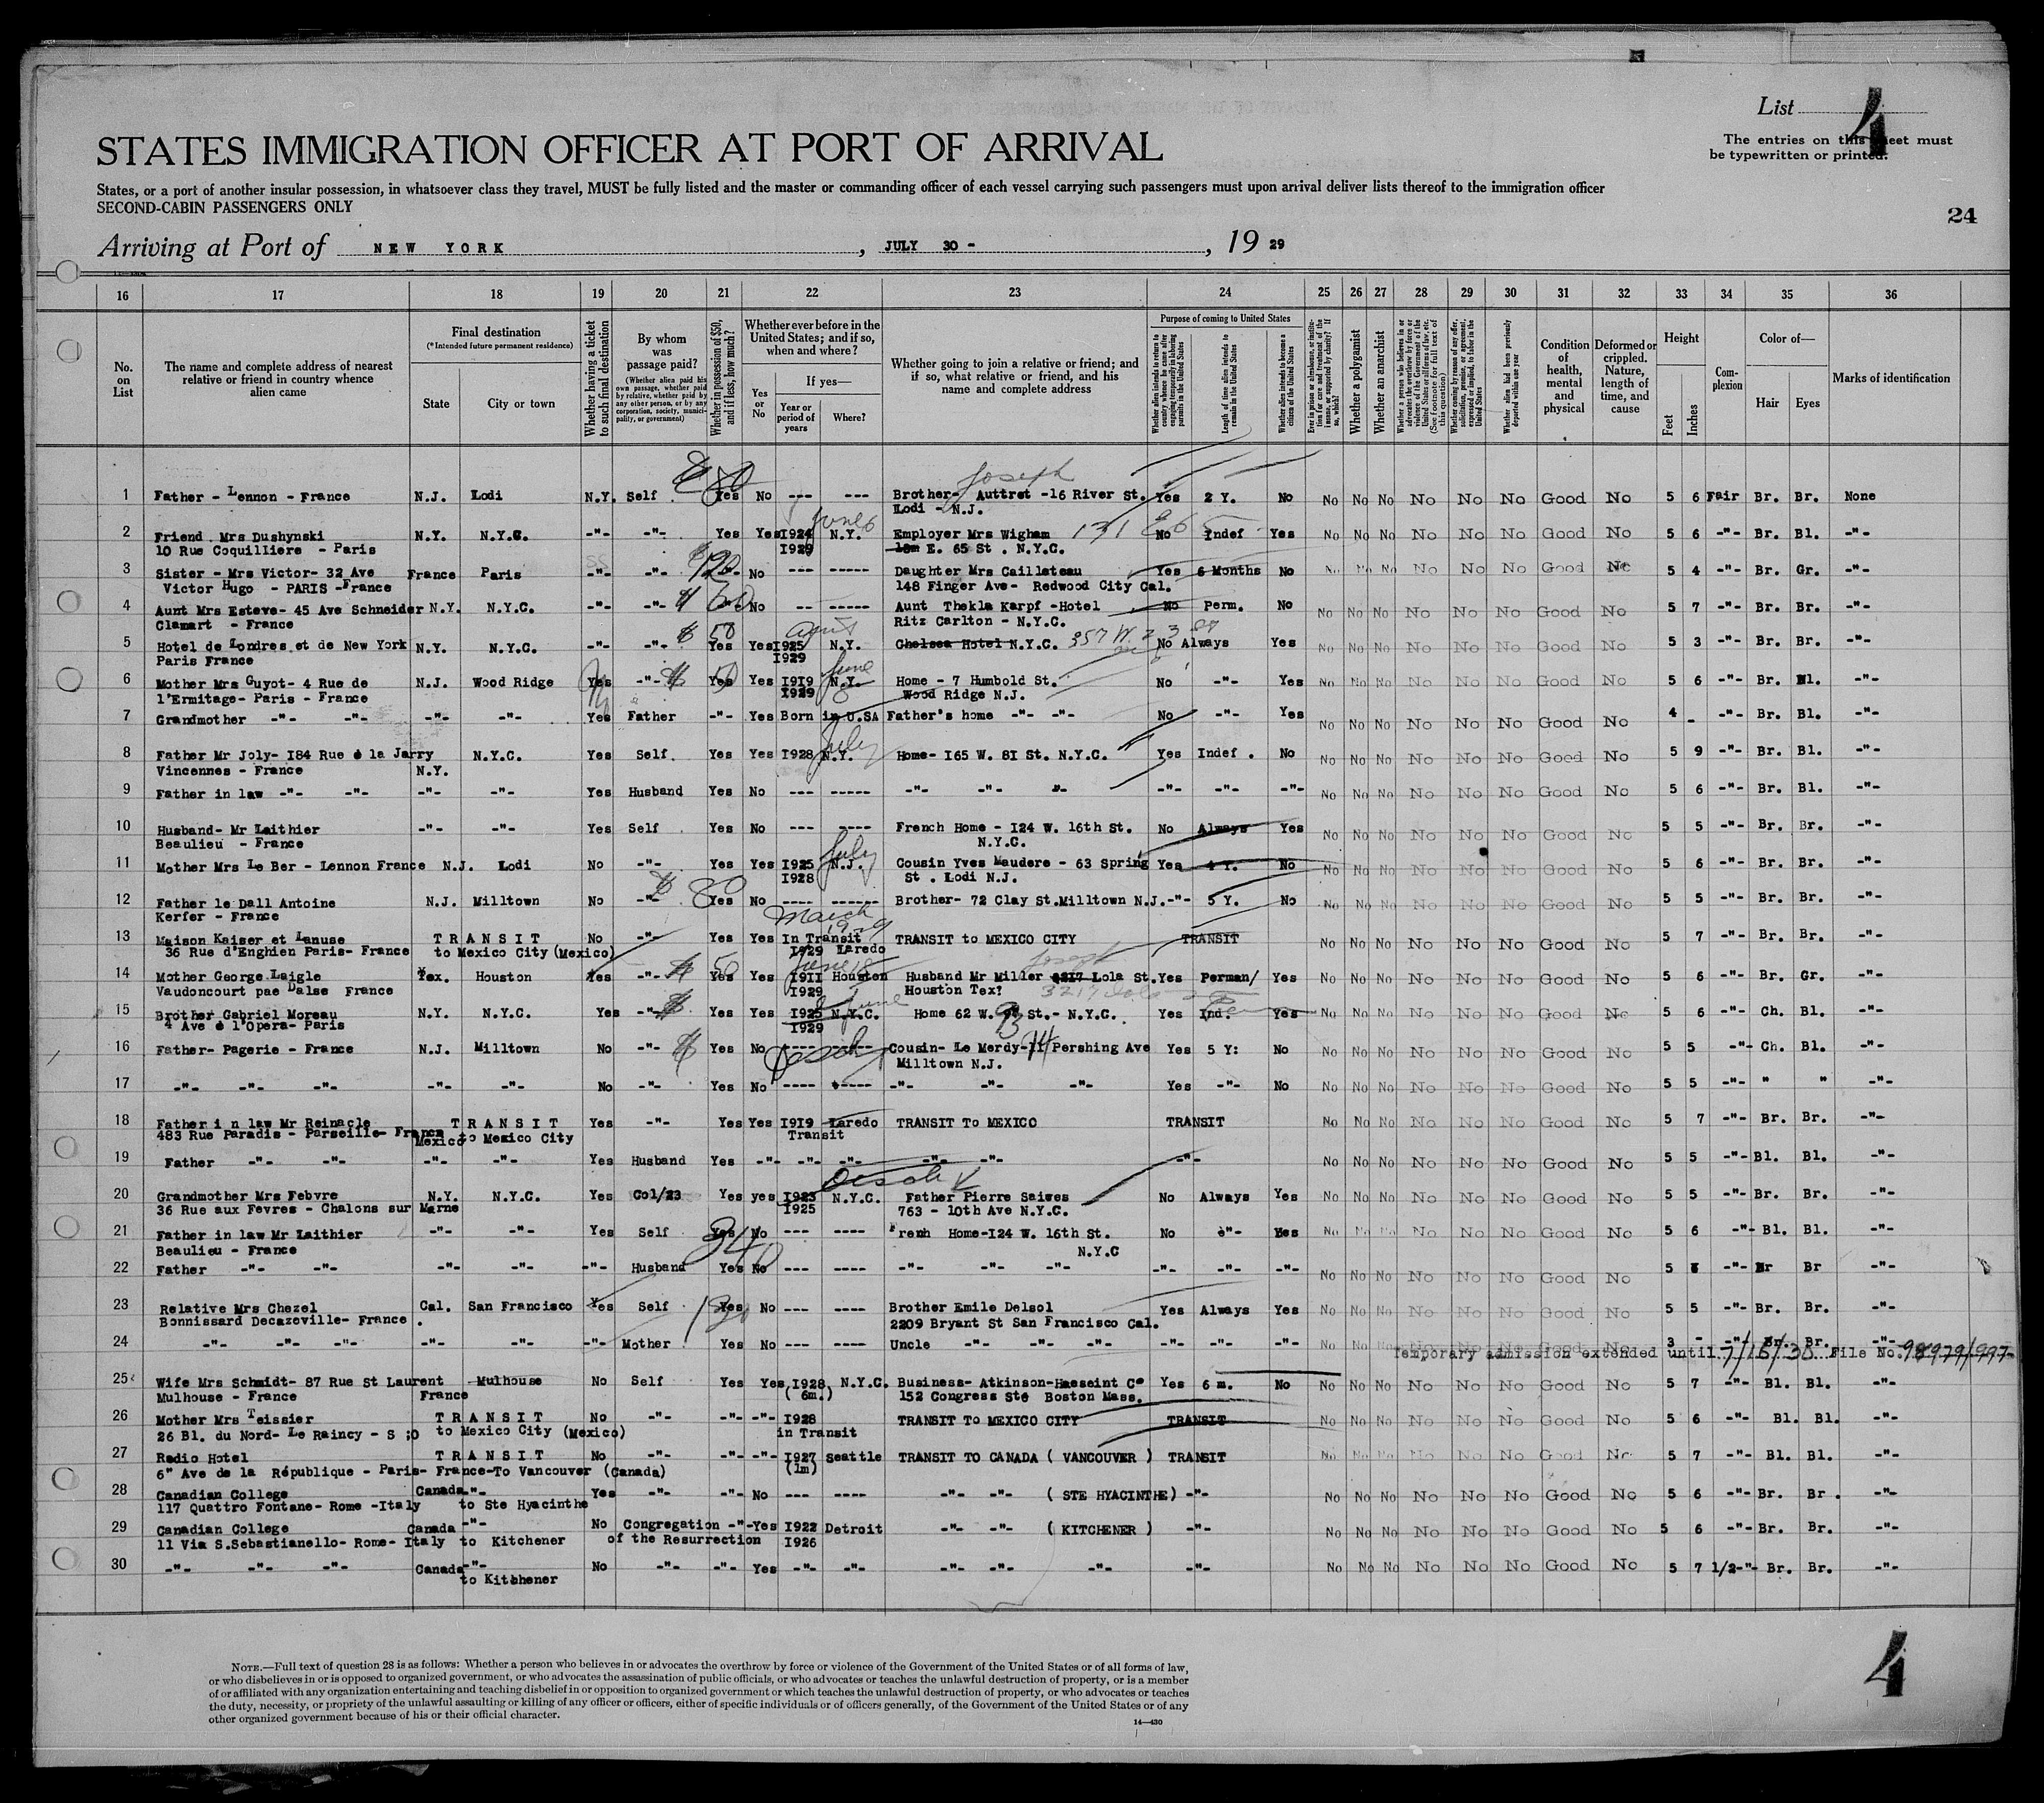 List 4
The entries on this sheet must
be typewritten or printed.
STATES IMMIGRATION OFFICER AT PORT OF ARRIVAL
States, or a port of another insular possession, in whatsoever class they travel, MUST be fully listed and the master or commanding officer of each vessel carrying such passengers must upon arrival deliver lists thereof to the immigration officer
SECOND-CABIN PASSENGERS ONLY
24
Arriving at Port of NEW YORK, JULY 30 -, 1929
16 17 18 19 20 21 22 23 24 25 26 27 28 29 30 31 32 33 34 35 36
No. on List
The name and complete address of nearest relative or friend in country whence alien came
Final destination
(*Intended future permanent residence)
State City or town
Whether having a ticket to such final destination
By whom was passage paid?
(Whether alien paid his own passage, whether paid by relative, whether paid by any other person, or by any corporation, society, municipality, or government)
Whether in possession of $50, and if less, how much?
Whether ever before in the United States; and if so, when and where?
Yes or No
If yes—
Year or period of years Where?
Whether going to join a relative or friend; and if so, what relative or friend, and his name and complete address
Purpose of coming to United States
Whether alien intends to return to country whence he came after engaging temporarily in laboring pursuits in the United States
Length of time alien intends to remain in the United States
Whether alien intends to become a citizen of the United States
Whether a polygamist
Whether an anarchist
Condition of health, mental and physical
Deformed or crippled. Nature, length of time, and cause
Height
Feet Inches
Complexion
Color of—
Hair Eyes
Marks of identification
1 Father - Lennon - France N.J. Lodi N.Y. Self $80 Yes No --- --- Brother- Joseph Auttret -16 River St. Yes 2 Y. No No No No No No No Good No 5 6 Fair Br. Br. None
Lodi - N.J.
2 Friend Mrs Dushynski N.Y. N.Y.C. -"- -"- Yes Yes 1924 June 6 N.Y. Employer Mrs Wigham 131 E 65 No Indef Yes No No No No No No Good No 5 6 -"- Br. Bl. -"-
10 Rue Coquilliere - Paris 1929 E. 65 St . N.Y.C.
3 Sister - Mrs Victor- 32 Ave France Paris -"- -"- $120 -"- No --- ----- Daughter Mrs Caillateau Yes 6 Months No No No No No No No Good No 5 4 -"- Br. Gr. -"-
Victor Hugo - PARIS -France 148 Finger Ave- Redwood City Cal.
4 Aunt Mrs Esteve- 45 Ave Schneider N.Y. N.Y.C. -"- -"- $60 No -- ----- Aunt Thekla Karpf -Hotel No Perm. No No No No No No No Good No 5 7 -"- Br. Br. -"-
Clamart - France Ritz Carlton - N.Y.C.
5 Hotel de Londres et de New York N.Y. N.Y.C. -"- -"- $50 Yes Yes 1925 N.Y. Chelsea Hotel N.Y.C. 357 W 23 No Always Yes No No No No No No Good No 5 3 -"- Br. Br. -"-
Paris France 1929
6 Mother Mrs Guyot- 4 Rue de N.J. Wood Ridge Yes -"- $50 Yes Yes 1919 June N.Y. Home - 7 Humbold St. No -"- Yes No No No No No No Good No 5 6 -"- Br. Bl. -"-
l'Ermitage- Paris - France 1929 8 Wood Ridge N.J.
7 Grandmother -"- -"- -"- -"- Yes Father -"- Yes Born in U.SA Father's home -"- -"- No -"- Yes No No No No No No Good No 4 - -"- Br. Bl. -"-
8 Father Mr Joly- 184 Rue de la Jarry N.Y.C. Yes Self Yes Yes 1928 July N.Y. Home- 165 W. 81 St. N.Y.C. Yes Indef . No No No No No No No Good No 5 9 -"- Br. Bl. -"-
Vincennes - France N.Y.
9 Father in law -"- -"- -"- -"- Yes Husband Yes No --- ----- -"- -"- "- -"- -"- -"- No No No No No No Good No 5 6 -"- Br. Bl. -"-
10 Husband- Mr Laithier -"- -"- Yes Self Yes No --- ---- French Home - 124 W. 16th St. No Always Yes No No No No No No Good No 5 5 -"- Br. Br. -"-
Beaulieu - France N.Y.C.
11 Mother Mrs Le Ber - Lennon France N.J. Lodi No -"- Yes Yes 1925 July N.J. Cousin Yves Maudere - 63 Spring Yes 4 Y. No No No No No No No Good No 5 6 -"- Br. Br. -"-
1928 St . Lodi N.J.
12 Father le Dall Antoine N.J. Milltown No -"- $80 Yes No ---- ------ Brother- 72 Clay St.Milltown N.J. -"- 5 Y. No No No No No No No Good No 5 5 -"- Br. Br. -"-
Kerfer - France
13 Maison Kaiser et Lanuse TRANSIT No -"- Yes Yes March 1929 In Transit TRANSIT to MEXICO CITY TRANSIT No No No No No No Good No 5 7 -"- Br. Br. -"-
36 Rue d'Enghien Paris- France to Mexico City (Mexico) 1929 Laredo
14 Mother George Laigle Tex. Houston Yes -"- $50 Yes Yes 1911 June 18 Houston Husband Mr Joseph Miller 3217 Lola St. Yes Perman/ Yes No No No No No No Good No 5 6 -"- Br. Gr. -"-
Vaudoncourt pae Dalse France 1929 Houston Tex? 3217 Lola
15 Brother Gabriel Moreau N.Y. N.Y.C. Yes -"- $ Yes Yes 1925 June N.Y.C. Home 62 W. 93 St.- N.Y.C. Yes Ind. Yes No No No No No No Good No 5 6 -"- Ch. Bl. -"-
4 Ave de l'Opera- Paris 1929
16 Father- Pagerie - France N.J. Milltown No -"- $ Yes No ---- ---- Cousin- Le Merdy-14 Pershing Ave Yes 5 Y: No No No No No No No Good No 5 5 -"- Ch. Bl. -"-
Milltown N.J.
17 -"- -"- -"- -"- -"- No -"- Yes No ---- ----- -"- -"- -"- Yes -"- No No No No No No No Good No 5 5 -"- " " -"-
18 Father i n law Mr Reinacle TRANSIT Yes -"- Yes Yes 1919 Laredo TRANSIT To MEXICO TRANSIT No No No No No No Good No 5 7 -"- Br. Br. -"-
483 Rue Paradis - Parseille- France Mexico to Mexico City Transit
19 Father -"- -"- -"- -"- Yes Husband Yes -"- -"- -"- -"- -"- -"- No No No No No No Good No 5 5 -"- Bl. Bl. -"-
20 Grandmother Mrs Febvre N.Y. N.Y.C. Yes Col/23 Yes yes 1923 N.Y.C. Father Pierre Saiwes No Always Yes No No No No No No Good No 5 5 -"- Br. Br. -"-
36 Rue aux Fevres - Chalons sur Marne 1925 763 - 10th Ave N.Y.C.
21 Father in law Mr Laithier -"- -"- Yes Self 340 Yes No --- ---- Frenh Home-124 W. 16th St. No -"- Yes No No No No No No Good No 5 6 -"- Bl. Bl. -"-
Beaulieu - France N.Y.C
22 Father -"- -"- -"- -"- -"- Husband Yes No --- ---- -"- -"- -"- -"- -"- -"- No No No No No No Good No 5 -"- Br Br -"-
23 Relative Mrs Chezel Cal. San Francisco Yes Self Yes No --- ---- Brother Emile Delsol Yes Always Yes No No No No No No Good No 5 5 -"- Br. Br. -"-
Bonnissard Decazeville- France . 2209 Bryant St San Francisco Cal.
24 -"- -"- -"- -"- -"- -"- Mother Yes No --- ---- Uncle -"- -"- -"- -"- -"- -"- No No No No No No Good No 3 - -"- Br. Br. -"-
Temporary admission extended until 7/18/30 File No. 98979/997
25 Wife Mrs Schmidt- 87 Rue St Laurent Mulhouse No Self Yes Yes 1928 N.Y.C. Business- Atkinson-Haeseint Co Yes 6 m. No No No No No No No Good No 5 7 -"- Bl. Bl. -"-
Mulhouse - France France (6m.) 152 Congress Ste Boston Mass.
26 Mother Mrs Teissier TRANSIT No -"- -"- -"- 1928 TRANSIT To MEXICO CITY TRANSIT No No No No No No Good No 5 6 -"- Bl. Bl. -"-
26 Bl. du Nord- Le Raincy - S ;O to Mexico City (Mexico) in Transit
27 Radio Hotel TRANSIT No -"- -"- -"- 1927 Seattle TRANSIT TO CANADA ( VANCOUVER ) TRANSIT No No No No No No Good No 5 7 -"- Bl. Bl. -"-
6" Ave de la République - Paris- France-To Vancouver (Canada) (1m)
28 Canadian College Canada -"- Yes -"- -"- No --- ---- -"- -"- ( STE HYACINTHE) -"- No No No No No No Good No 5 6 -"- Br. Br . -"-
117 Quattro Fontane- Rome -Italy to Ste Hyacinthe
29 Canadian College Canada -"- No Congregation -"- Yes 1922 Detroit -"- -"- ( KITCHENER ) -"- No No No No No No Good No 5 6 -"- Br. Br. -"-
11 Via S.Sebastianello- Rome- Italy to Kitchener of the Resurrection 1926
30 -"- -"- -"- Canada -"- No -"- -"- Yes -"- -"- -"- -"- -"- -"- No No No No No No Good No 5 7 1/2 -"- Br. Br. -"-
to Kitchener
4
NOTE.—Full text of question 28 is as follows: Whether a person who believes in or advocates the overthrow by force or violence of the Government of the United States or of all forms of law,
or who disbelieves in or is opposed to organized government, or who advocates the assassination of public officials, or who advocates or teaches the unlawful destruction of property, or is a member
of or affiliated with any organization entertaining and teaching disbelief in or opposition to organized government or which teaches the unlawful destruction of property, or who advocates or teaches
the duty, necessity, or propriety of the unlawful assaulting or killing of any officer or officers, either of specific individuals or of officers generally, of the Government of the United States or of any
other organized government because of his or their official character.
14—430